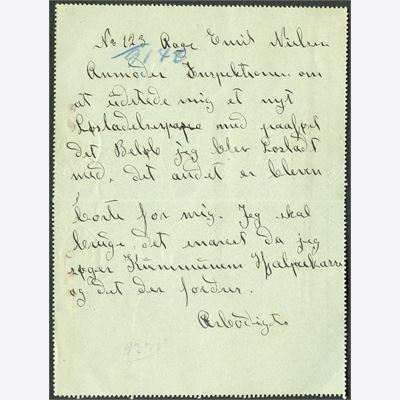 No 123 Aage Emil Nielsen
9140
Anmoder Inspektionen om
at udstede mig et nyt
med paaført
det Beløb jeg blev Løsladt
med, det andet er bleven
borte for mig. Jeg skal
bruge det snarest da jeg
søger Kummunens Hjælpekasse
og det der fordres.
Ærbødigst
9375